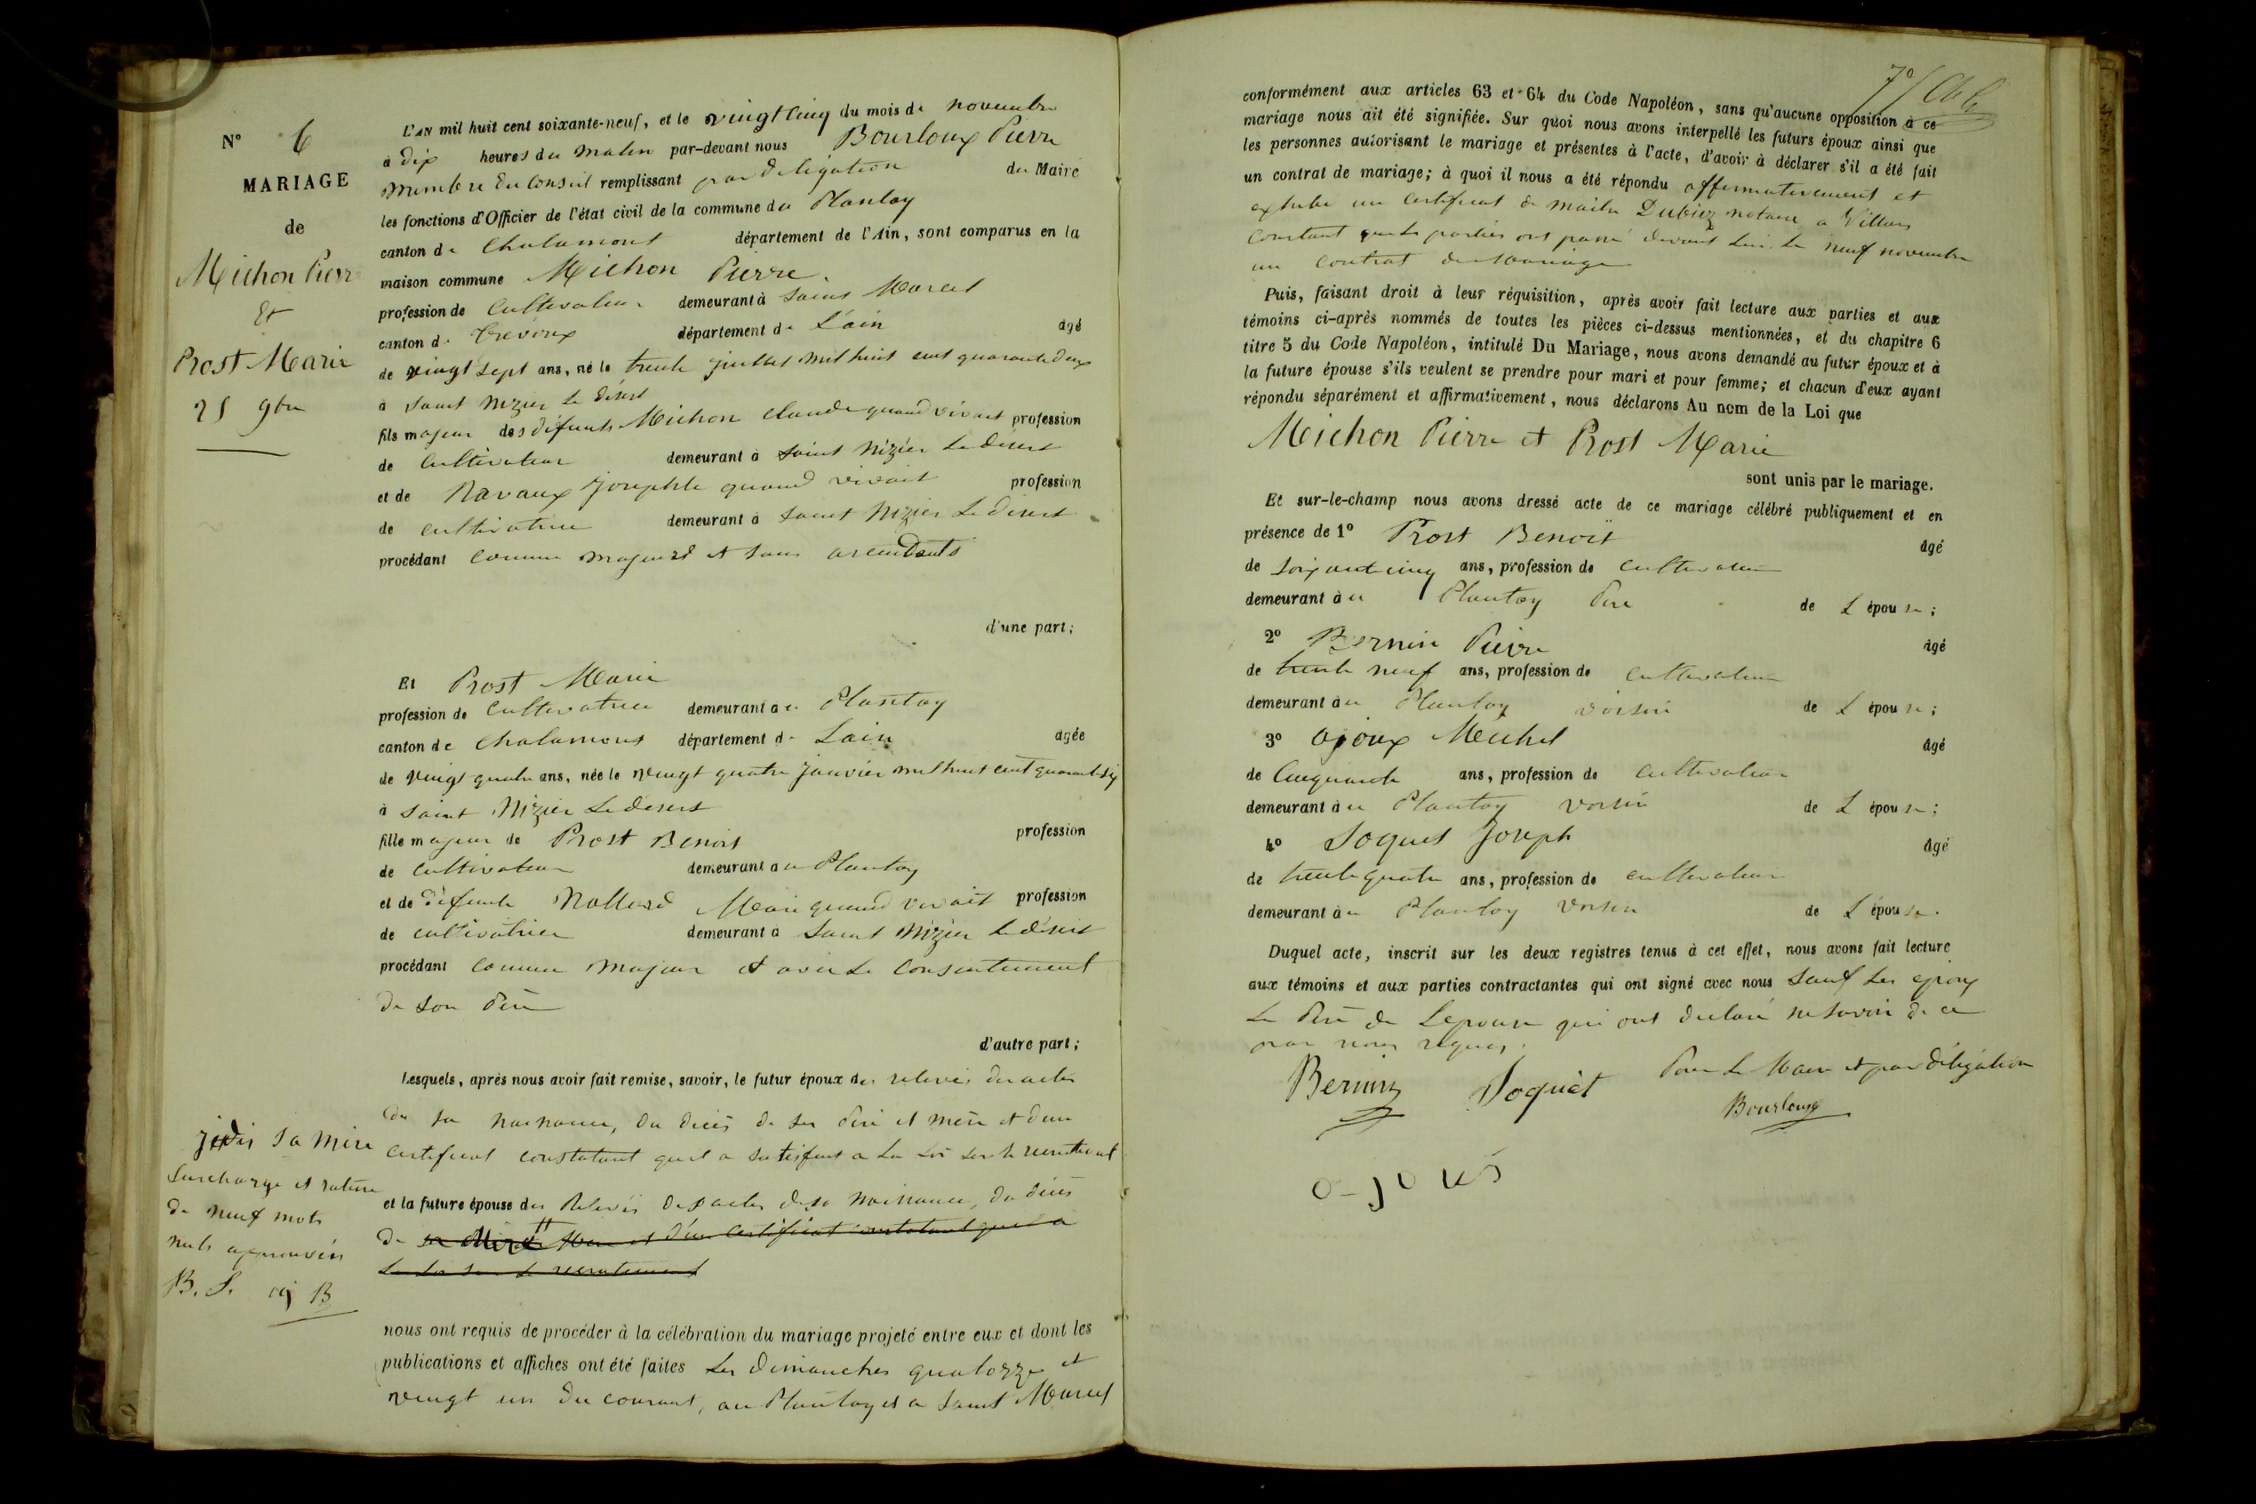 N° 6
MARIAGE
de
Michon Pierre
Et
Prost Marie
25 9bre
L'AN mil huit cent soixante-neuf, et le vingt cinq du mois de novembre
à dix heures du matin par-devant nous Bourloux Pierre
membre du Conseil remplissant par deligation du Maire
les fonctions d'Officier de l'état civil de la commune du Plantay
canton de Chalamont département de l'Ain, sont comparus en la
maison commune Michon Pierre
profession de Cultivateur demeurant à Saint Marcel
canton de Trevoux département de L'ain âgé
de vingt sept ans, né le trente juillet mil huit cent quarante deux
à Saint Nizier le désert
fils majeur des défunts Michon Claude quand vivait profession
de Cultivateur demeurant à Saint Nizier le désert
et de Ravaux Josephte quand vivait profession
de cultivatrice demeurant à Saint Nizier le désert
procédant comme majeur et sans ascendants
d'une part;
Et Prost Marie
profession de Cultivatrice demeurant au Plantay
canton de Chalamont département de L'ain âgée
de vingt quatre ans, née le vingt quatre janvier mil huit cent quarante six
à Saint Nizier le désert
fille majeure de Prost Benoit profession
de Cultivateur demeurant au Plantay
et de défunte Marie quand vivait profession
de cultivatrice demeurant à Saint Nizier le désert
procédant comme majeure et avec le consentement
de son père
d'autre part;
Lesquels, après nous avoir fait remise, savoir, le futur époux des relevés des actes
de sa naissance, du décès de ses père et mère et d'un
certificat constatant qu'il a satisfait a la loi sur le recrutement
et la future épouse des Relevés des actes de sa naissance, du décès
de sa mère et d'un certificat constatant qu'il a
la loi sur le recrutement
sa mère
Surcharge et rature
de neuf mots
nuls approuvés
B. S. oj B
nous ont requis de procéder à la célébration du mariage projeté entre eux et dont les
publications et affiches ont été faites les dimanches quatorze et
vingt un du courant, au Plantay et a Saint Marcel
7°
conformément aux articles 63 et 64 du Code Napoléon, sans qu'aucune opposition à ce
mariage nous ait été signifiée. Sur quoi nous avons interpellé les futurs époux ainsi que
les personnes autorisant le mariage et présentes à l'acte, d'avoir à déclarer s'il a été fait
un contrat de mariage; à quoi il nous a été répondu affirmativement et
exhibé un certificat de maitre Dubiez notaire a Villars
Constant que les parties ont passé devant lui le neuf novembre
un contrat de mariage
Puis, faisant droit à leur réquisition, après avoir fait lecture aux parties et aux
témoins ci-après nommés de toutes les pièces ci-dessus mentionnées, et du chapitre 6
titre 5 du Code Napoléon, intitulé Du Mariage, nous avons demandé au futur époux et à
la future épouse s'ils veulent se prendre pour mari et pour femme; et chacun d'eux ayant
répondu séparément et affirmativement, nous déclarons Au nom de la Loi que
Michon Pierre et Prost Marie
sont unis par le mariage.
Et sur-le-champ nous avons dressé acte de ce mariage célébré publiquement et en
présence de 1° Prost Benoit âgé
de soixante cinq ans, profession de cultivateur
demeurant au Plantay Père de L'épouse;
2° Bernin Pierre âgé
de trente neuf ans, profession de cultivateur
demeurant au Plantay voisin de L'épouse;
3° ojoux Michel âgé
de Cinquante ans, profession de cultivateur
demeurant au Plantay voisin de L'épouse;
4° Soquet Joseph âgé
de trente quatre ans, profession de cultivateur
demeurant au Plantay voisin de L'épouse.
Duquel acte, inscrit sur les deux registres tenus à cet effet, nous avons fait lecture
aux témoins et aux parties contractantes qui ont signé avec nous Sauf les epoux
le père de Lepouse qui ont declaré ne savoir de ce
par nous requis.
Pour le Maire et par déligation
Bernin Soquet Bourloux